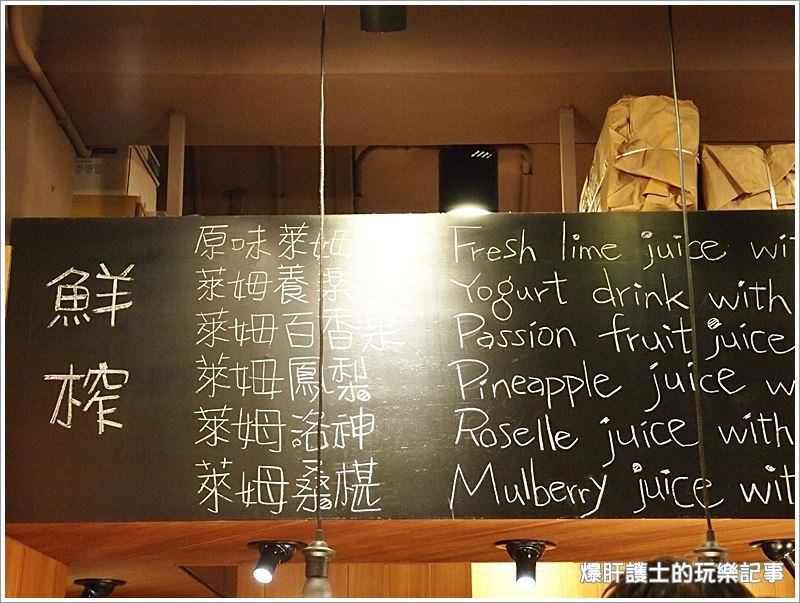 鮮榨
原味萊姆 Fresh lime juice wi
萊姆養樂 Yogurt drink with
萊姆百香果 Passion fruit juice
萊姆鳳梨 Pineapple juice w
萊姆洛神 Roselle juice with
萊姆桑椹 Mulberry juice wit
爆肝護士的玩樂記事